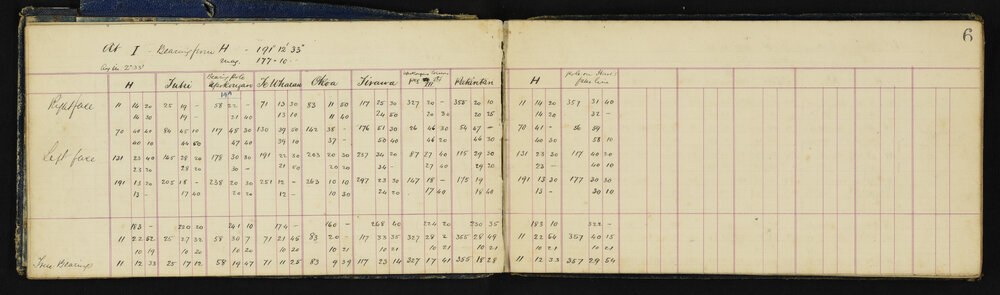 6
At I - Bearing from H - 191° 12' 33"
mag. 177 - 10
H Tutri Bearing Pole K. Whatau Okoa Tirawa Pukintau H Pole on Stone
Right face 11 14 20 25 19 - 58 22 - 71 13 30 83 11 50 117 25 30 327 20 - 355 20 10 11 14 20 357 31 40
14 30 19 - 21 40 13 10 11 40 24 50 20 30 20 25 14 20 32 -
70 40 40 84 45 10 117 48 30 130 39 50 142 38 - 176 51 30 26 46 30 54 47 - 70 41 - 56 59
40 10 44 50 47 40 39 10 37 - 50 40 46 20 46 30 40 30 58 10
Left face 131 23 40 145 28 20 178 30 30 191 22 30 203 20 30 237 34 20 87 27 40 115 29 30 131 23 30 117 40 20
23 20 28 20 30 - 21 50 20 20 34 - 27 40 29 20 23 - 40 10
191 13 20 205 18 - 238 20 30 251 12 - 263 10 10 297 23 30 147 18 - 175 19 191 13 30 177 30 30
13 - 17 40 20 20 12 - 10 30 24 20 17 40 18 40 13 - 30 10
183 - 220 20 241 10 174 - 160 - 268 40 224 20 230 35 183 10 322 -
11 22 52 25 27 32 58 30 7 71 21 45 83 20 - 117 33 35 327 28 2 355 28 49 11 22 54 357 40 15
10 19 10 20 10 20 10 20 10 21 10 21 10 21 10 21 10 21 10 21
True Bearings 11 12 33 25 17 12 58 19 47 71 11 25 83 9 39 117 23 14 327 17 41 355 18 28 11 12 33 357 29 54